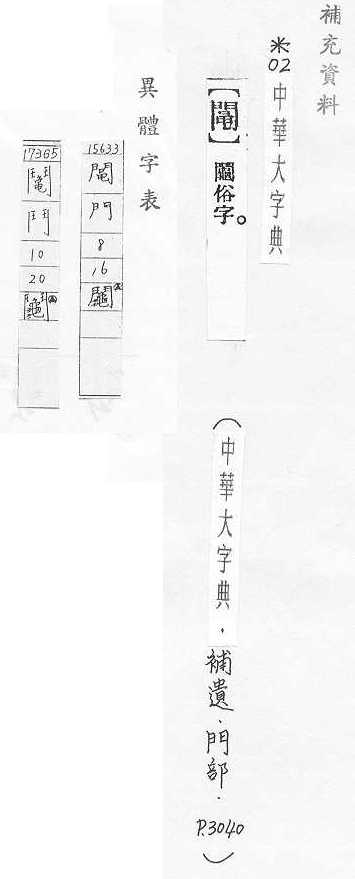 補充資料
※02 中華大字典
俗字。
(中華大字典．補遺．門部．P.3040)
異體字表
15633
門
8
16
17365
鬥
10
20